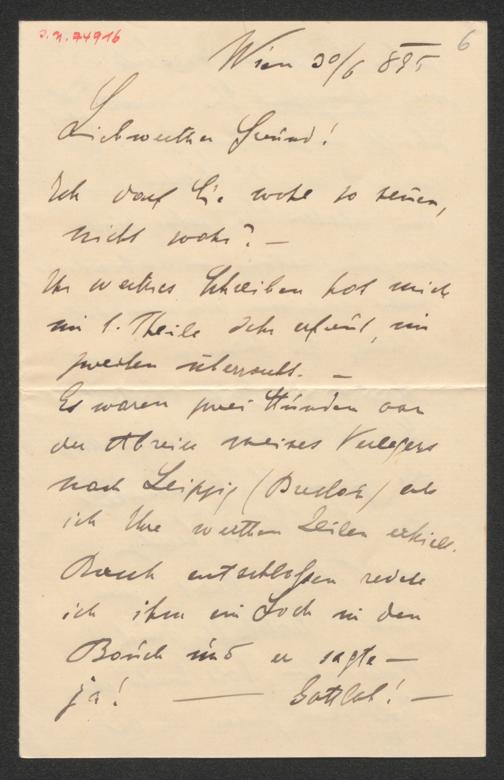 J.N. 74916
6
Wien 30/6 895
Liebwerther Freund!
Ich darf Sie wohl so nennen,
nicht wahr? –
Ihr werthes Schreiben hat mich
im 1. Theile sehr erfreut, im
zweiten überrascht. –
Es waren zwei Stunden vor
der Abreise meines Verlegers
nach Leipzig ( ) als
ich Ihre werthen Zeilen erhielt.
Rasch entschlossen redete
ich ihm ein Loch in den
Bauch und er sagte –
ja! — Gottlob! –